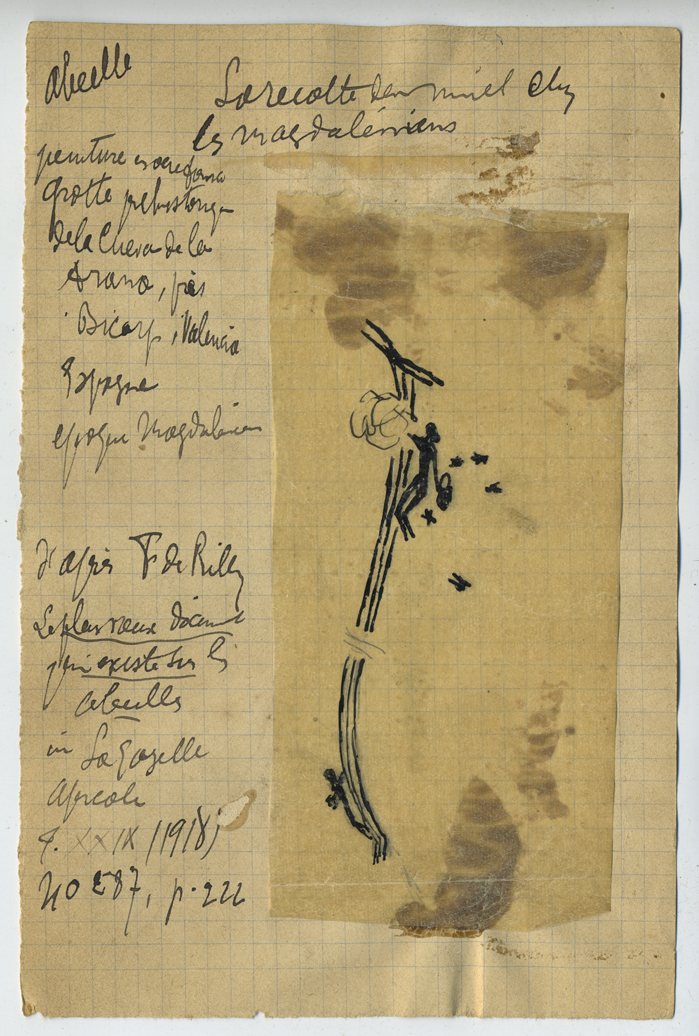 abeille
La recolte du miel chez
les magdaléniens
peinture dans
grotte préhistorique
de la Cueva de la
Arana, près
Bicorp, Valencia
Espagne
époque Magdalénien
d'après F de Rilly
Le plus vieux document
qui existe sur les
abeilles
in La Gazette
Apicole
t. XXIX (1918)
no 287, p. 222